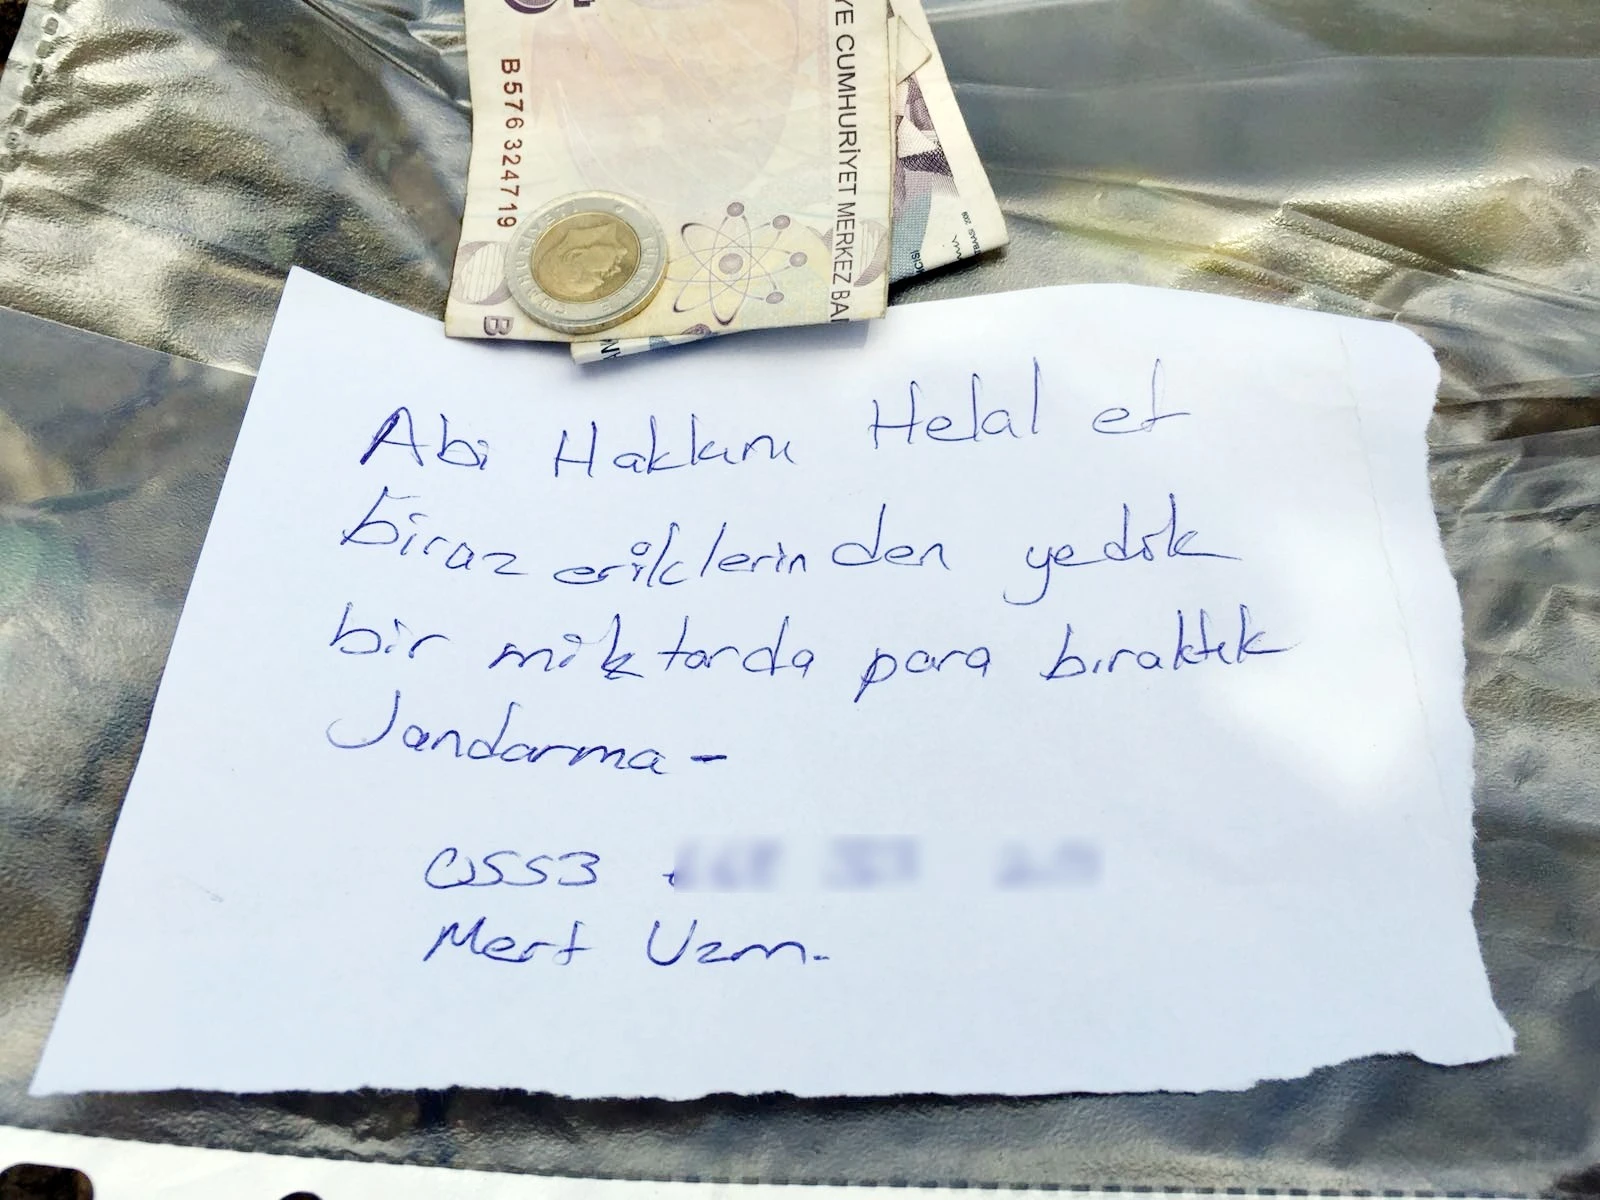 B576 324719
YE CUMHURİYET MERKEZ BA
Abi Hakkını Helal et
biraz eriklerinden yedik
bir miktarda para bıraktık
Jandarma -
0553
Mert Uzm.